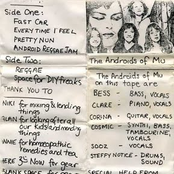 Side One:
FAST CAR
EVERY TIME I FEEL
PRETTY NUN
ANDROID REGGAE JAM
Side Two:
REGGAE
Space for DIY freaks
THANK YOU TO
NIKI for moving & lending things
ALAN for looking after all our kids and mending things
for homoeopathic remedies and tea
HERE & NOW for gear
The Androids of Mu
The Androids of Mu on the tape are
BESS - BASS, VOCALS
CLARE - PIANO, VOCALS
CORINA GUITAR, VOCALS
COSMIC - SYNTH, BASS, TAMBOURINE, VOCALS
SOOZ - VOCALS
STEFFY NOTICE - DRUMS, SOUND
SPECIAL HELP FROM